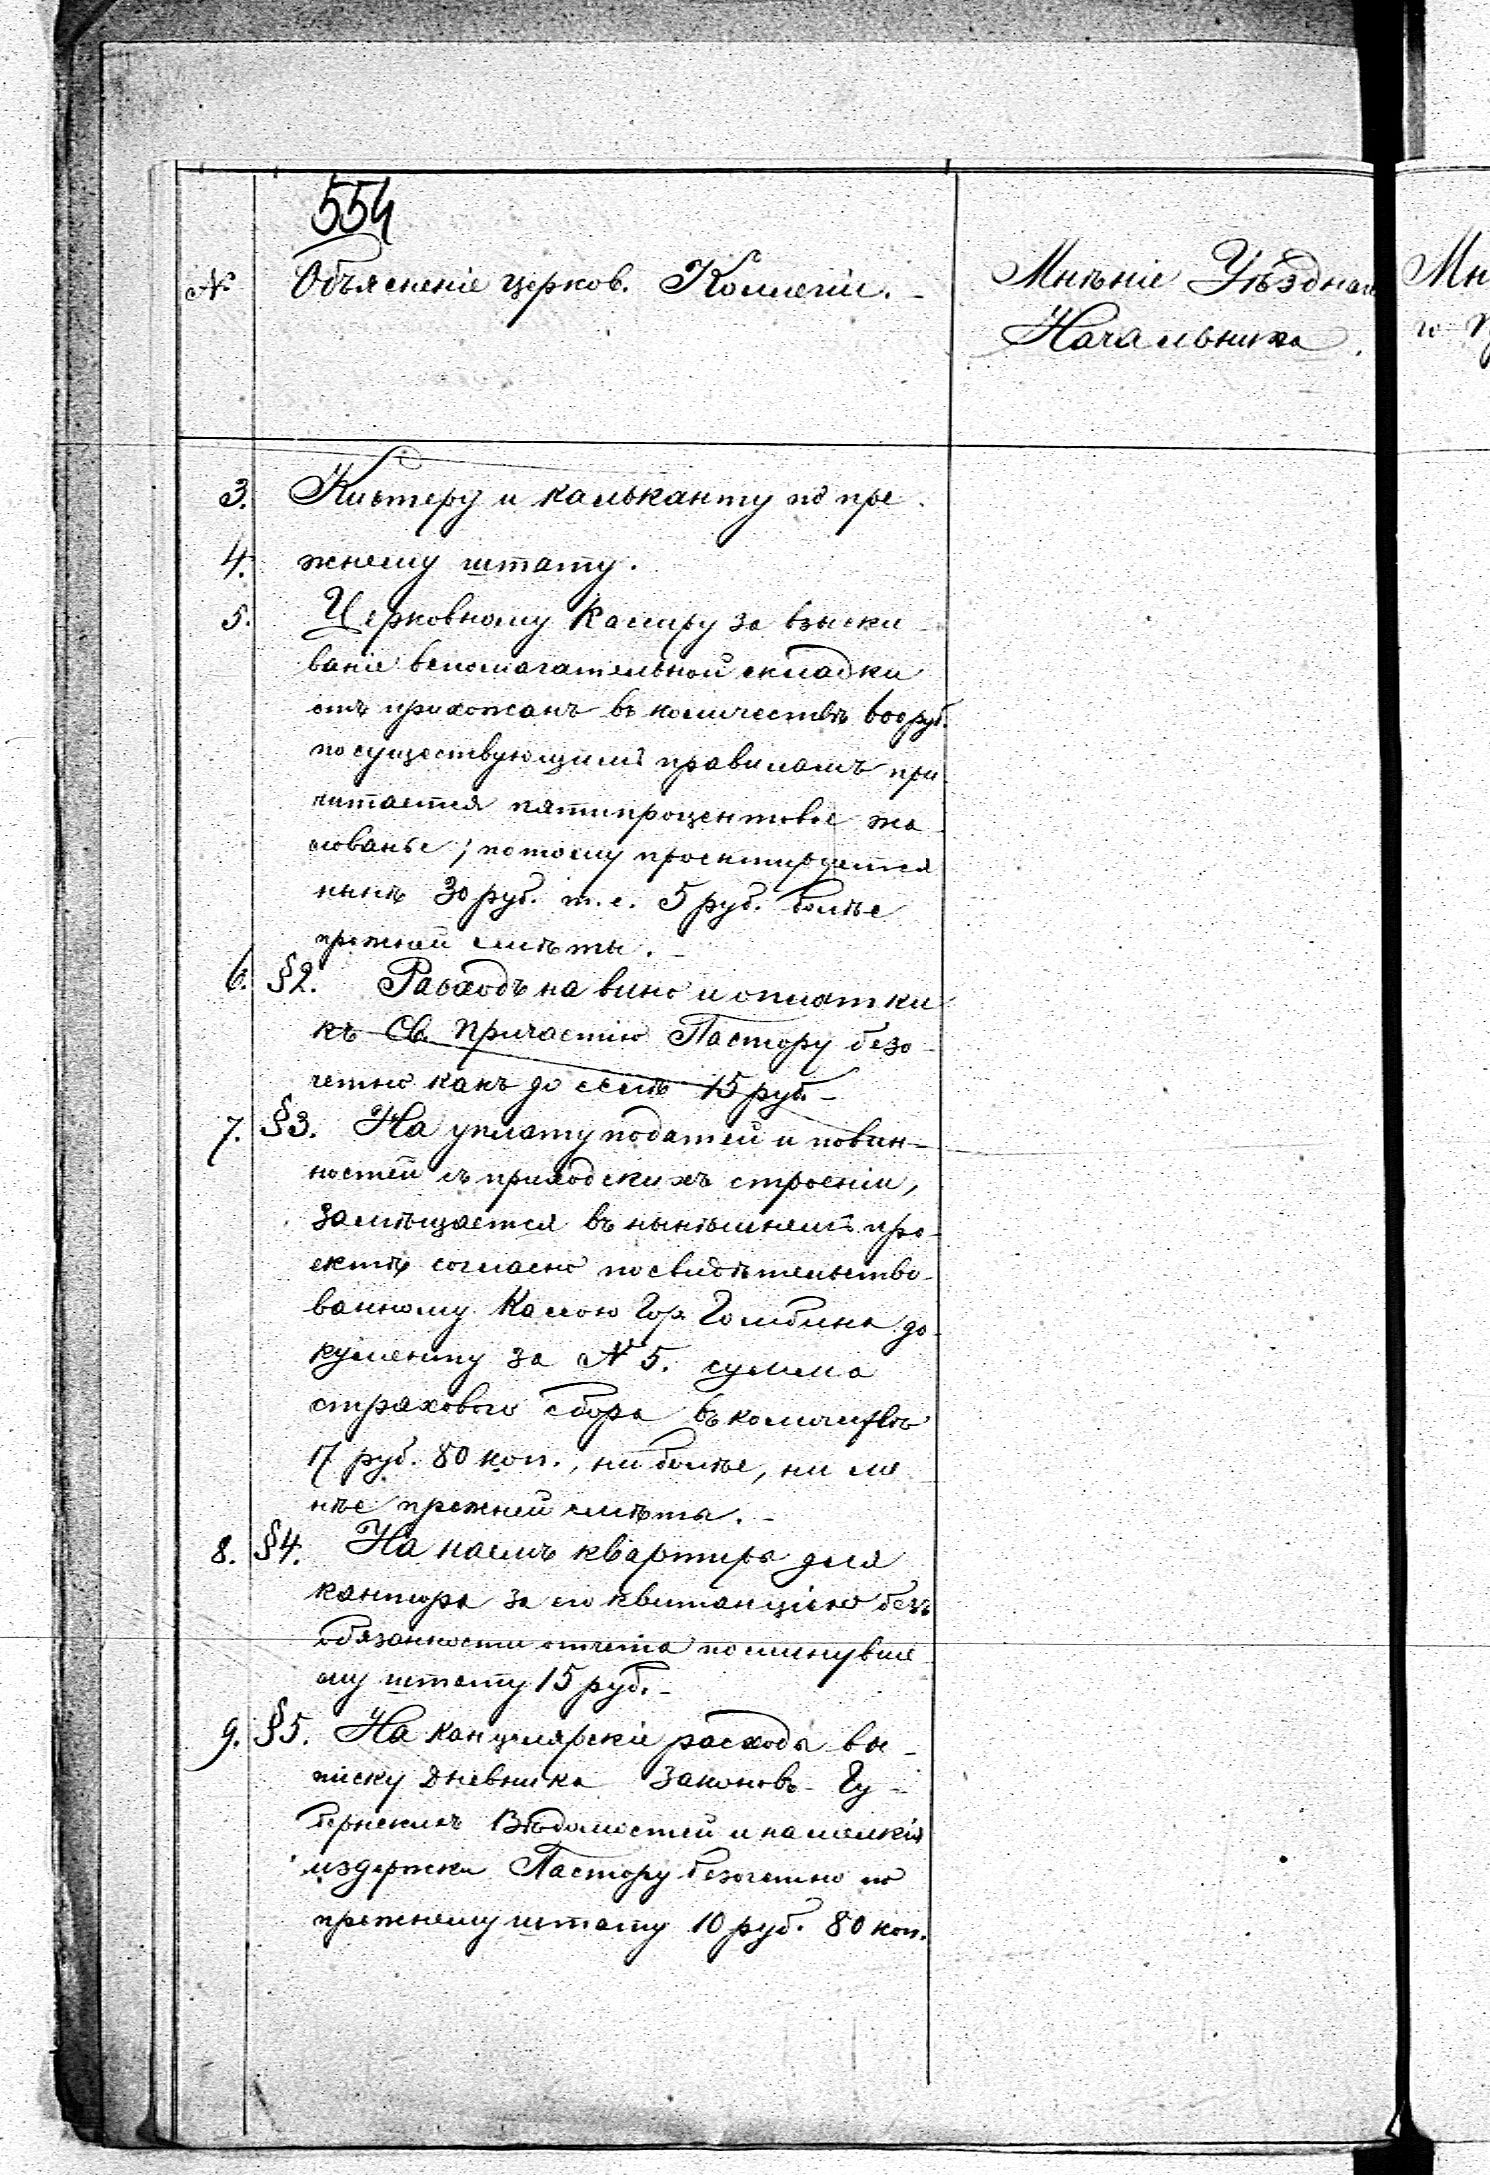 554
№ Объясненіе церков. Коллегіи. –
Мнѣніе Уѣзднаго
Начальника.
Мн
го
3. Кистеру и кальканту по пре-
4. жнему штату.
5. Церковному Кассиру за взыски-
ваніе вспомагательной складки
отъ прихожанъ въ количествѣ 600 руб.
по существующимъ правиламъ при-
читается пятипроцентовое жа-
лованье; потому проектируется
нынѣ 30 руб. т. е. 5 руб. болѣе
прежней смѣты. –
6. §2. Расходъ на вино и оплатки
къ Св. Причастію Пастору безо-
четно какъ до селѣ 15 руб. –
7. §3. На уплату податей и повин-
ностей съ приходскихъ строеній,
замѣщается въ нынѣшнемъ про-
ектѣ согласно посвидѣтельство-
ванному Кассою Гор. Гомбина до-
кументу за № 5. сумма
страховаго сбора въ количествѣ
17 руб. 80 коп., ни болѣе, ни ме-
нѣе прежней смѣты. –
8. §4. На наемъ квартиры для
кантора за его квитанціею безъ
обязанности отчета по минувше-
му штату 15 руб. –
9. §5. На канцелярскіе расходы вы-
писку Дневника Законовъ – Гу-
бернскихъ Вѣдомостей и на мелкія
издержки Пастору безочетно по
прежнему штату 10 руб. 80 коп.